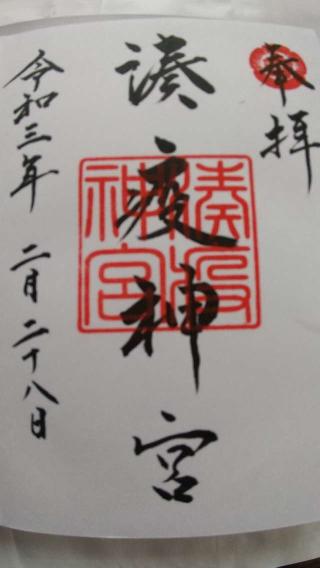 奉拝
湊疫神宮
湊疫神宮
令和三年 二月二十八日